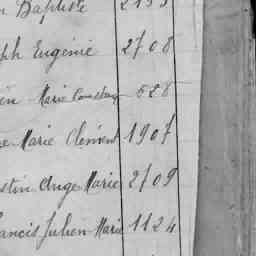 n Baptiste 2155
ph Eugénie 2708
Marie 628
e Marie Clément 1907
stin Ange Marie 2109
ancis Julien Marie 1124